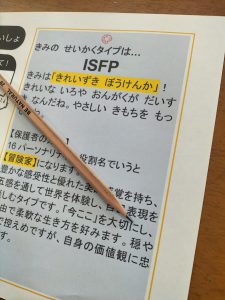 いしょ
て！
きみの せいかくタイプは…
ISFP
きみは「きれいずき ぼうけんか」！
きれいな いろや おんがくが だいす
なんだね。やさしい きもちを もっ
【保護者の
16パーソナリテ 役割名でいうと
【冒険家】になります
豊かな感受性と優れた美 覚を持ち、
五感を通して世界を体験し、自 表現を
しむタイプです。「今ここ」を大切にし、
由で柔軟な生き方を好みます。穏や
で控えめですが、自身の価値観に忠
す。